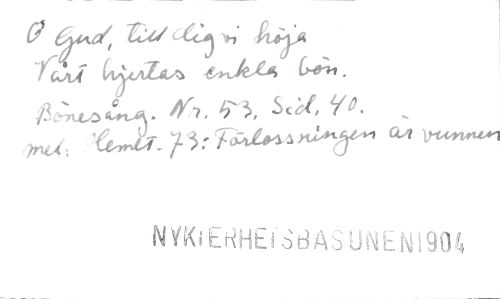 O Gud, till dig vi höja
Vårt hjertas enkla bön.
Bönesång. Nr. 53, Sid. 40.
mel. Hemlt. 73: Förlossningen är vunnen
NYKTERHETSBASUNEN 1904